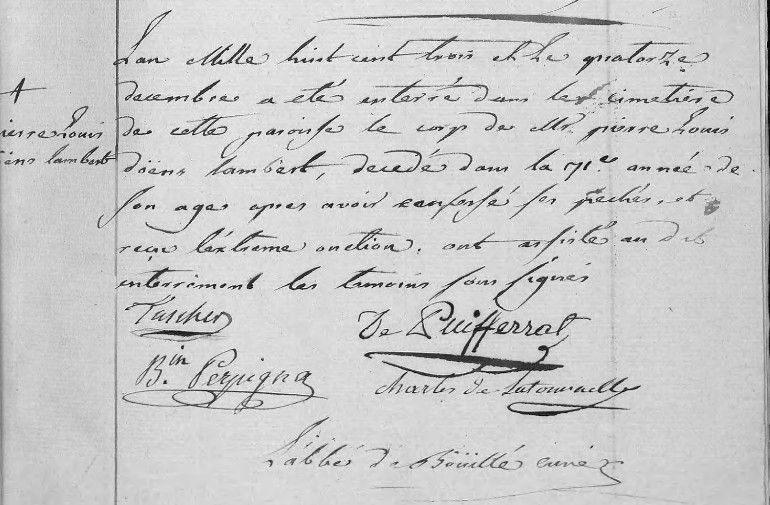 L'an Mille huit cent trois et le quatorze
decembre a eté enterré dans le cimetiére
de cette paroisse le corp de Mr. pierre Louis
doëns lambert, decedé dans la 71.e année de
son age apres avoir confessé ses pechés, et
reçu l'extreme onction. ont assisté au dit
enterrement les temoins sous signés
ierre Louis
ëns lambert
Tascher
De Puifferrat
B.in Perpigna
Charles de Latournelle
L'abbé de Boüillé curé